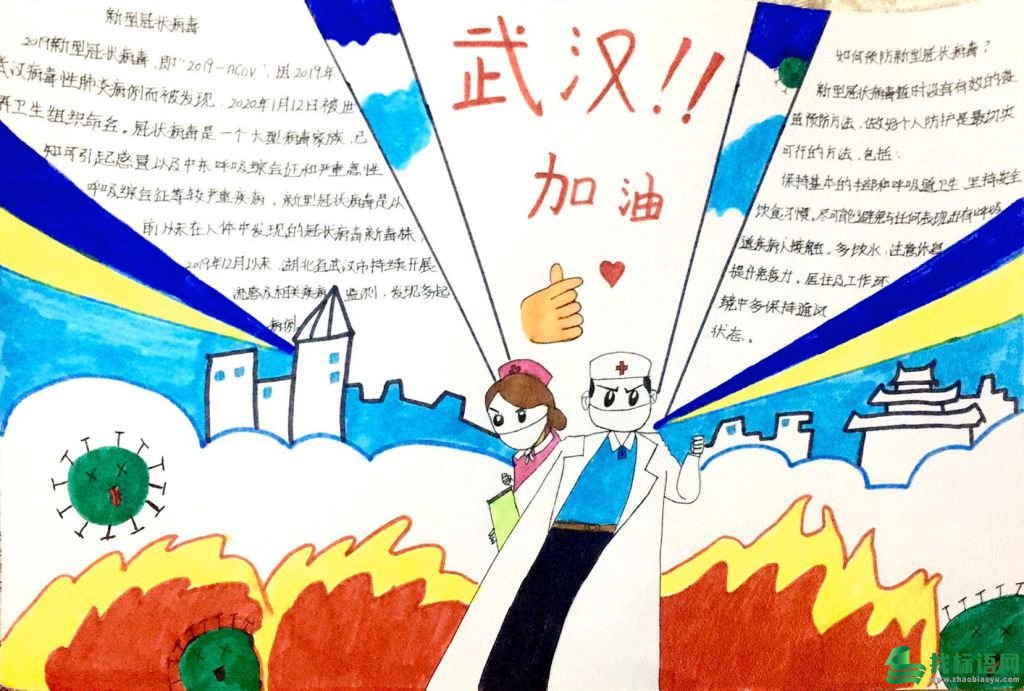 新型冠状病毒
2019新型冠状病毒,即"2019-nCoV",因2019年
武汉病毒性肺炎病例而被发现,2020年1月12日被世
界卫生组织命名。冠状病毒是一个大型病毒家族,已
知可引起感冒以及中东呼吸综合征和严重急性
呼吸综合征等较严重疾病。新型冠状病毒是以
前从未在人体中发现的冠状病毒新毒株,
2019年12月以来,湖北省武汉市持续开展
流感及相关疾病监测,发现多起
病例
武汉!!
加油
如何预防新型冠状病毒?
新型冠状病毒暂时没有有效的疫
苗预防方法,做好个人防护是最切实
可行的方法,包括:
保持基本的手部和呼吸道卫生,坚持安全
饮食习惯,尽可能避免与任何表现出有呼吸
道疾病人接触。多饮水,注意休息
提升免疫力。居住及工作环
境中多保持通风
状态。
找标语网
www.zhaobiaoyu.com